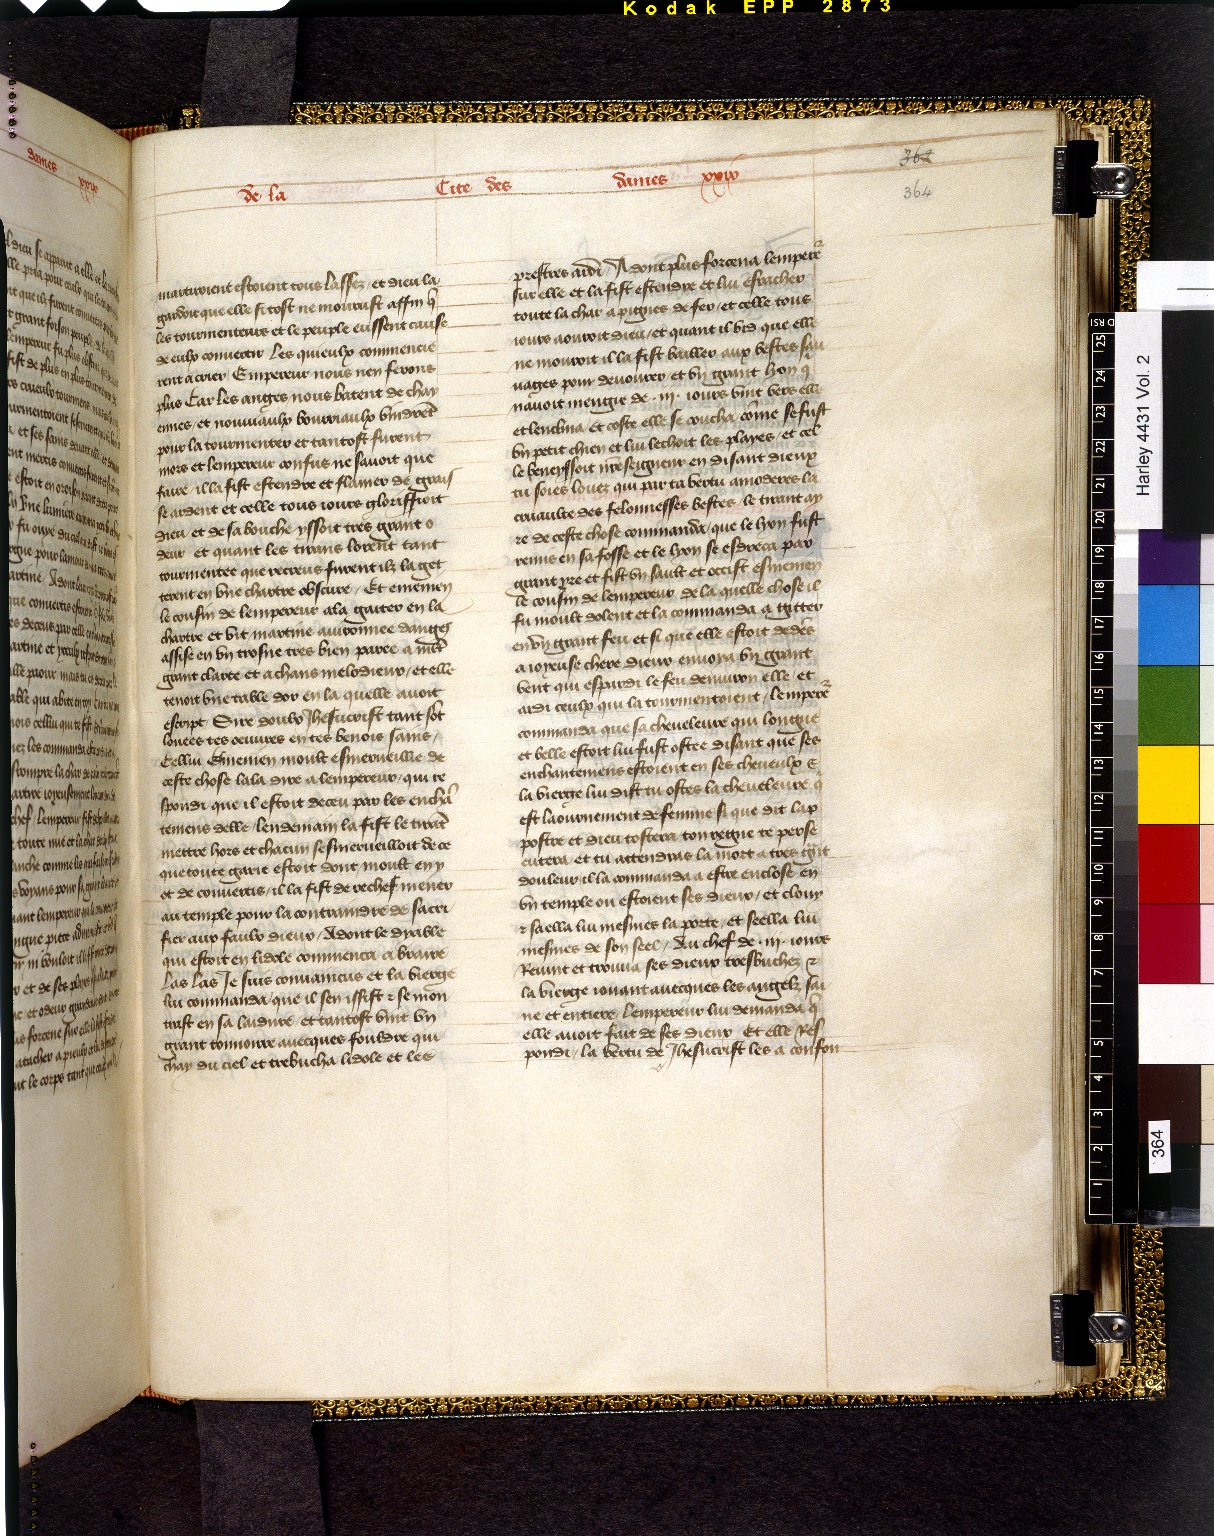 Kodak EPP 2873
362
364
de la Cite des dames xxix
martiroient estoient tous lassez et dieu la
gardoit que elle si tost ne mourust affin q̃
les tourmenteurs et le peuple eussent cause
de eulx convertir Les quieulx commencie
rent a crier Empereur nous nen ferons
plus Car les anges nous batent de chay
ennes / et nouviaulx bourriaulx vindrẽt
pour la tourmenter et tantost furent
mors et lempereur confus ne savoit que
faire / il la fist estendre et flamer de grais
se ardent et celle tous jours gloriffioit
dieu et de sa bouche yssoit tres grant o
deur et quant les tirans lorent tant
tourmentee que recreus furent ilz la get
terent en une chartre obscure / Et emenien
le cousin de lempereur ala gaitier en la
chartre et vit martine avironnee danges
assise en un trosne tres bien paree a mlt
grant clarte et a chans melodieux / et elle
tenoit une table dor en la quelle avoit
escript Sire doulx Jhesucrist tant sõt
louees tes oeuvres en tes benois sains /
Cellui Emenien moult esmerveillie de
ceste chose lala dire a lempereur / qui re
spondi que il estoit deceu par les enchã
temens delle / lendemain la fist le tirãt
mettre hors et chacun sesmerveilloit de ce
que toute garie estoit dont moult en y
et de convertis / il la fist de rechef mener
au temple pour la contraindre de sacri
fier aux faulx dieux / Adont le dyable
qui estoit en lidole commenca a braire
Las las Je suis convaincus et la vierge
lui commanda que il sen issist ⁊ se mon
trast en sa laidure et tantost vint un
grant tonnoirre avecques fouldre qui
chay du ciel et trebucha lidole et les
prestres ardi / Adont plus forcena lemperẽ
sur elle et la fist estendre et lui esrachier
toute la char a pignes de fer / et celle tous
jours aouroit dieu / et quant il vid que elle
ne mouroit il la fist baillier aux bestes sau
vages pour devourer et un grant lyon q̃
navoit mengie de .iij. jours vint vers elle
et lenclina et coste elle se coucha cõme se fust
un petit chien et lui lechoit les playes / et cel
le beneyssoit nr̃e seigneur en disant dieux
tu soies louez qui par ta vertu amoderes la
cruaulte des felonnesses bestes / le tirant ay
re de ceste chose commanda que le lyon fust
remis en sa fosse et le lyon se esdreca par
grant yre et fist un sault et occist esmenien
le cousin de lempereur de la quelle chose il
fu moult dolent et la commanda a gitter
en un grant feu et si que elle estoit dedẽs
a joyeuse chere dieux envoya un grant
vent qui espardi le feu denviron elle et
ardi ceulx qui la tourmentoient / lemperẽ
commanda que sa cheveleure qui longue
et belle estoit lui fust ostee disant que ses
enchantemens estoient en ses cheveulx ⁊
la vierge lui dist tu ostes la cheveleure q̃
est laournement de femme si que dit lap
postre et dieu tostera ton regne te perse
cutera et tu attendras la mort a tres grãt
douleur il la commanda a estre enclose en
un temple ou estoient ses dieux / et clouy
⁊ saella lui mesmes la porte / et seella lui
mesmes de son seel / Au chef de .iij. jours
Revint et trouva ses dieux tresbuchez ⁊
la vierge jouant avecques les angelz sai
ne et entiere lempereur lui demanda q̃
elle avoit fait de ses dieux Et elle Res
pondi / la vertu de Jhesucrist les a confon
Harley 4431 Vol. 2
364
1 2 3 4 5 6 7 8 9 10 11 12 13 14 15 16 17 18 19 20 21 22 23 24 25